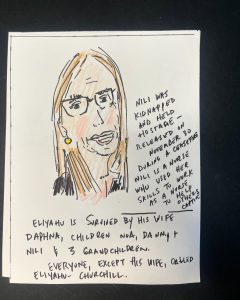 NILI WAS
KIDNAPPED
AND HELD
HOSTAGE –
RELEASED ON
NOVEMBER 30
DURING A CEASEFIRE
NILI IS A NURSE
WHO USED HER
SKILLS TO WORK
AS A NURSE
TO HELP
OTHERS
ELIYAHU IS SURVIVED BY HIS WIFE
DAPHNA, CHILDREN NOA, DANNY &
NILI & 3 GRANDCHILDREN.
EVERYONE, EXCEPT HIS WIFE, CALLED
ELIYAHU – CHURCHILL.